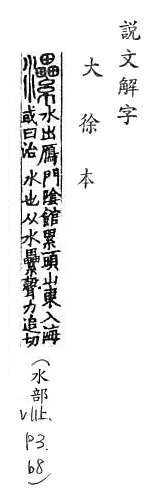 說文解字
大徐本
水出鴈門陰館累頭山東入海
或曰治 水也从水纍聲力追切
(水部
VIII上.
P3.
b8)